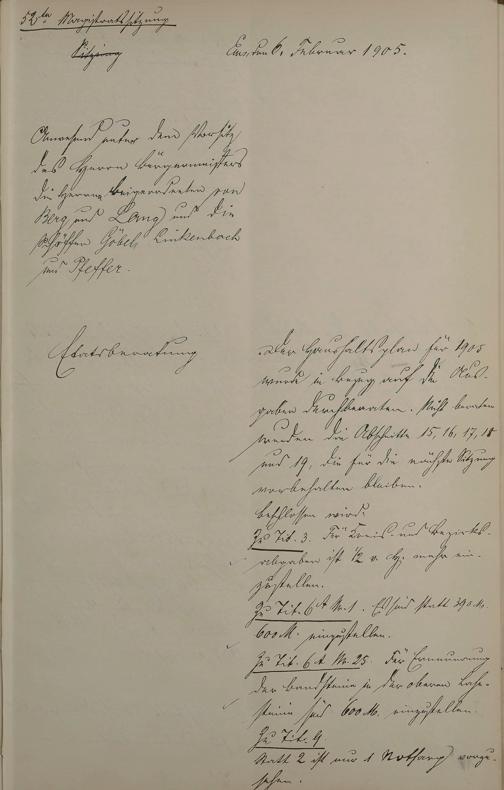 52te Magistratssitzung
Sitzung
Ems, den 6. Februar 1905.
Anwesend unter dem Vorsitz
des Herrn Bürgermeisters
die Herren Beigeordneten von
Berg und Lang und die
Schöffen Göbel, Linkenbach
und Pfeffer.
Etatsberatung
Der Haushaltsplan für 1905
wurde in Bezug auf die Aus-
gaben durchberaten. Nicht beraten
wurden die Abschnitte 15, 16, 17, 18
und 19, die für die nächste Sitzung
vorbehalten bleiben.
Beschlossen wird:
Zu Tit. 3. Für Kreis- und Bezirks-
abgaben ist 1/2 v. H. mehr ein-
zustellen.
Zu Tit. 6 A No. 1. Es sind statt 390 M.
600 M. einzustellen.
Zu Tit. 6 A No. 25. Für Erneuerung
der Bandsteine in der oberen Lahn-
sind 600 M. einzustellen.
Zu Tit. 9.
Statt 2 ist nur 1 vorzu-
sehen.